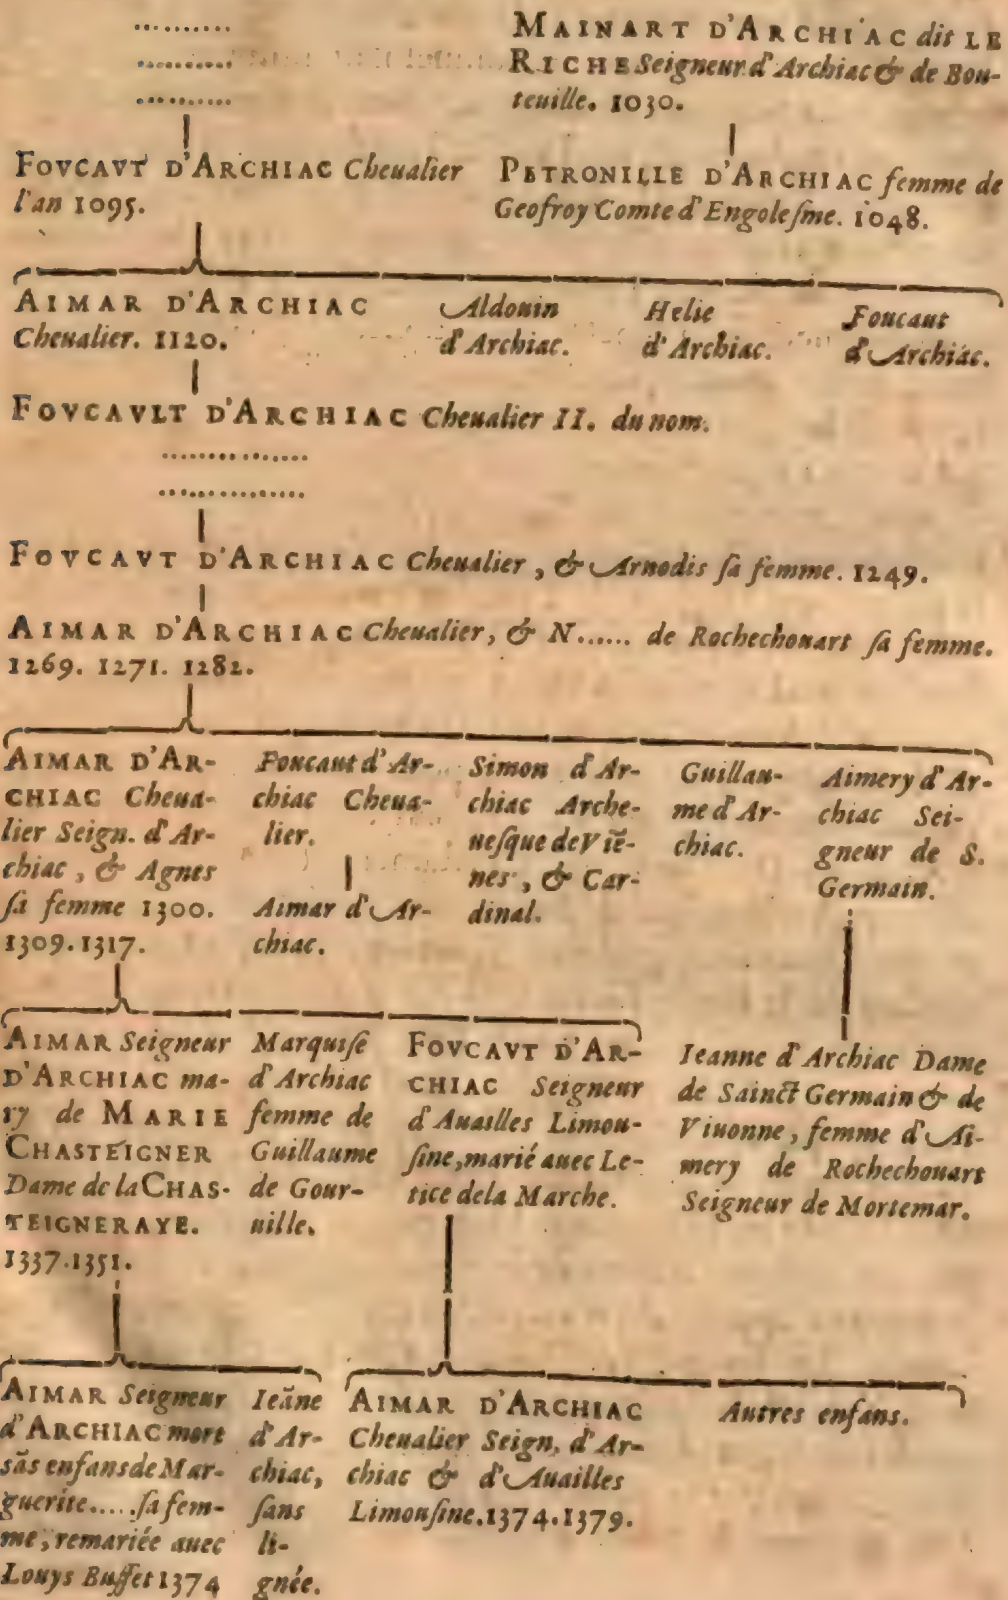 MAINART D'ARCHIAC dit LE
RICHE Seigneur d'Archiac & de Bou-
teuille. 1030.
FOVCAVT D'ARCHIAC Cheualier
l'an 1095.
PETRONILLE D'ARCHIAC femme de
Geofroy Comte d'Engolesme. 1048.
AIMAR D'ARCHIAC
Cheualier. 1120.
Aldouin
d'Archiac.
Helie
d'Archiac.
Foucaut
d'Archiac.
FOVCAVLT D'ARCHIAC Cheualier II. du nom.
FOVCAVT D'ARCHIAC Cheualier, & Arnodis sa femme. 1249.
AIMAR D'ARCHIAC Cheualier, & N...... de Rochechouart sa femme.
1269. 1271. 1282.
AIMAR D'AR-
CHIAC Cheua-
lier Seign. d'Ar-
chiac, & Agnes
sa femme 1300.
1309. 1317.
Foucaut d'Ar-
chiac Cheua-
lier.
Aimar d'Ar-
chiac.
Simon d'Ar-
chiac Arche-
uesque de Viē-
nes, & Car-
dinal.
Guillau-
me d'Ar-
chiac.
Aimery d'Ar-
chiac Sei-
gneur de S.
Germain.
AIMAR Seigneur
D'ARCHIAC ma-
ry de MARIE
CHASTEIGNER
Dame de la CHAS-
TEIGNERAYE.
1337. 1351.
Marquise
d'Archiac
femme de
Guillaume
de Gour-
uille.
FOVCAVT D'AR-
CHIAC Seigneur
d'Auailles Limou-
sine, marié auec Le-
tice de la Marche.
Ieanne d'Archiac Dame
de Sainct Germain & de
Viuonne, femme d'Ai-
mery de Rochechouart
Seigneur de Mortemar.
AIMAR Seigneur
d'ARCHIAC mort
sās enfans de Mar-
guerite..... sa fem-
me, remariée auec
Louys Buffet 1374
Ieāne
d'Ar-
chiac,
sans
li-
gnée.
AIMAR D'ARCHIAC
Cheualier Seign. d'Ar-
chiac & d'Auailles
Limousine. 1374. 1379.
Autres enfans.